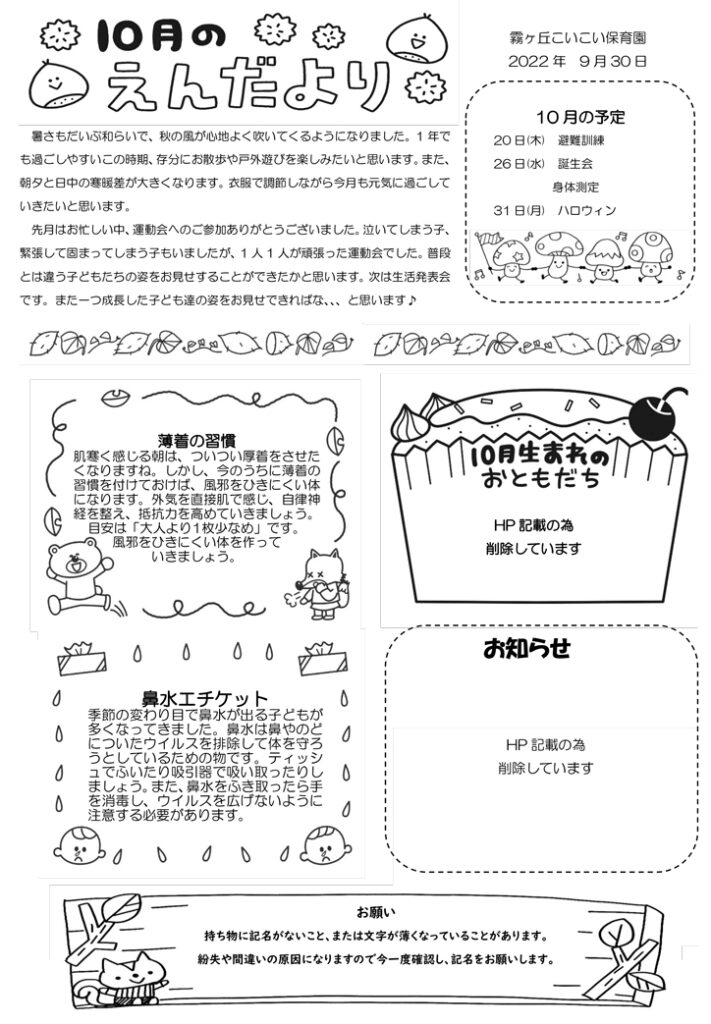 10月の
えんだより
霧ヶ丘こいこい保育園
2022年 9月30日
暑さもだいぶ和らいで、秋の風が心地よく吹いてくるようになりました。1年で
も過ごしやすいこの時期、存分にお散歩や戸外遊びを楽しみたいと思います。また、
朝夕と日中の寒暖差が大きくなります。衣服で調節しながら今月も元気に過ごして
いきたいと思います。
先月はお忙しい中、運動会へのご参加ありがとうございました。泣いてしまう子、
緊張して固まってしまう子もいましたが、1人1人が頑張った運動会でした。普段
とは違う子どもたちの姿をお見せすることができたかと思います。次は生活発表会
です。また一つ成長した子ども達の姿をお見せできればな、、、と思います♪
10月の予定
20日(木) 避難訓練
26日(水) 誕生会
身体測定
31日(月) ハロウィン
薄着の習慣
肌寒く感じる朝は、ついつい厚着をさせた
くなりますね。しかし、今のうちに薄着の
習慣を付けておけば、風邪をひきにくい体
になります。外気を直接肌で感じ、自律神
経を整え、抵抗力を高めていきましょう。
目安は「大人より1枚少なめ」です。
風邪をひきにくい体を作って
いきましょう。
10月生まれの
おともだち
HP記載の為
削除しています
鼻水エチケット
季節の変わり目で鼻水が出る子どもが
多くなってきました。鼻水は鼻やのど
についたウイルスを排除して体を守ろ
うとしているための物です。ティッシ
ュでふいたり吸引器で吸い取ったりし
ましょう。また、鼻水をふき取ったら手
を消毒し、ウイルスを広げないように
注意する必要があります。
お知らせ
HP記載の為
削除しています
お願い
持ち物に記名がないこと、または文字が薄くなっていることがあります。
紛失や間違いの原因になりますので今一度確認し、記名をお願いします。